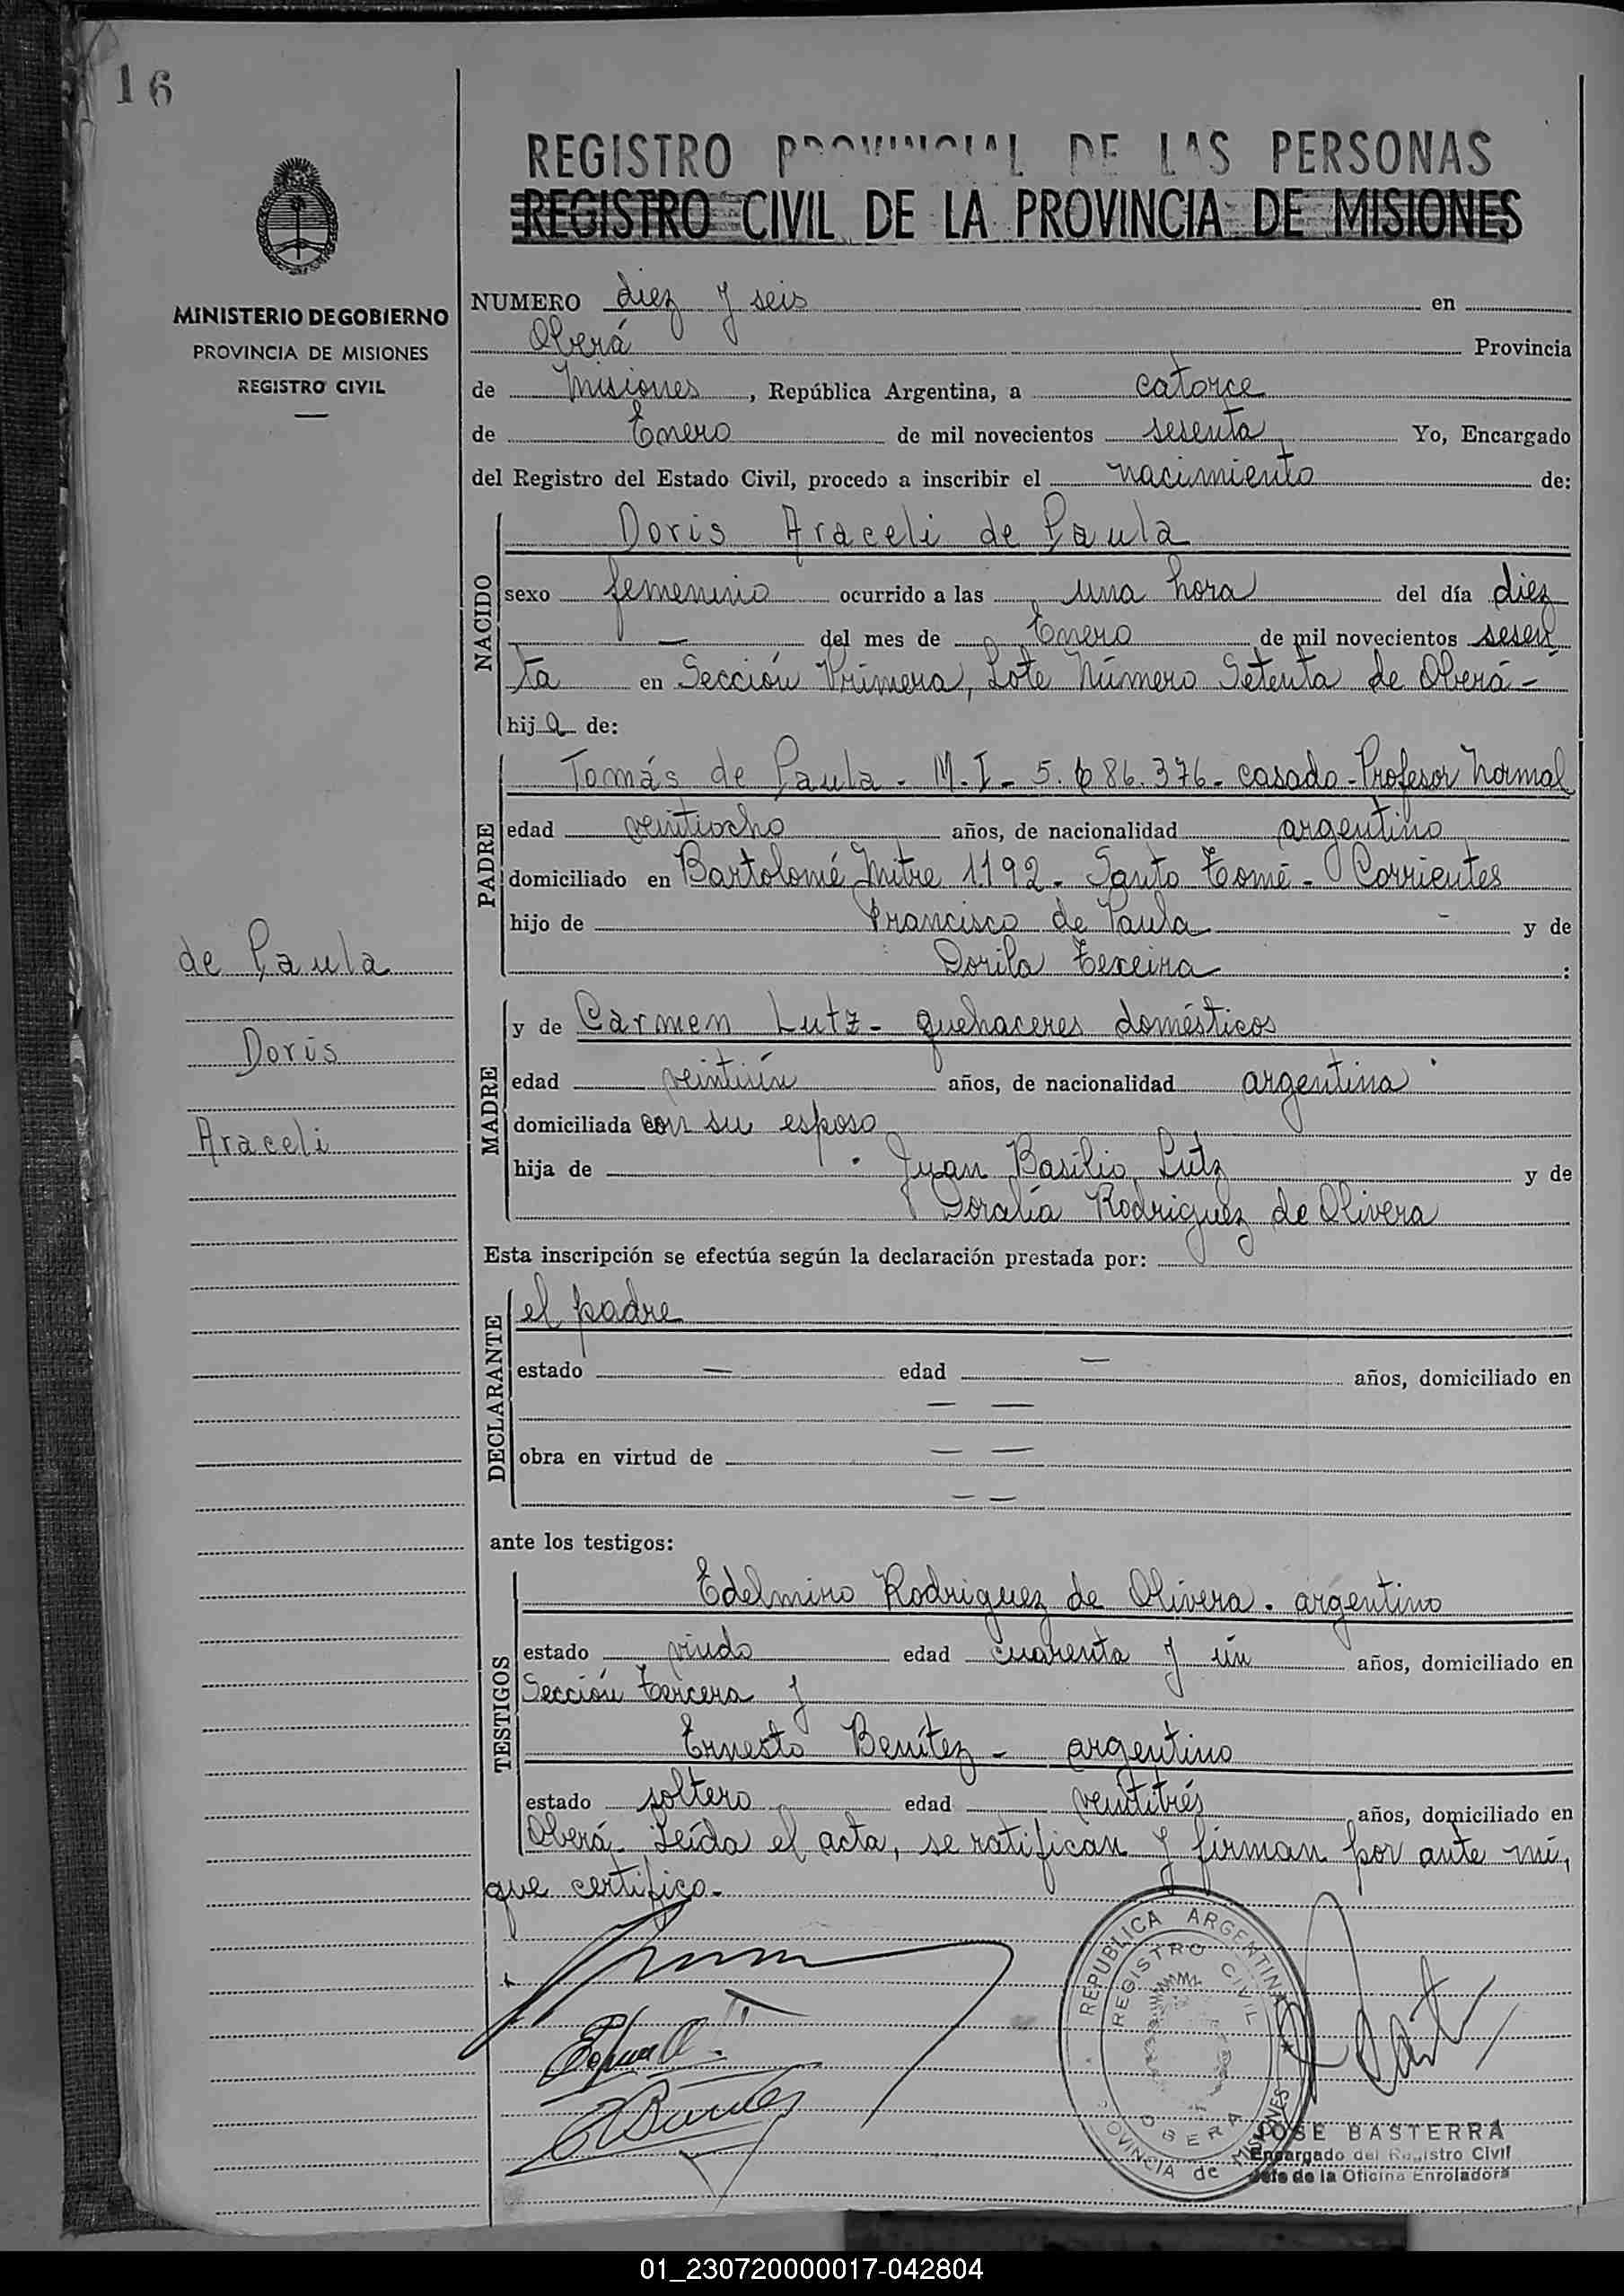 16
REGISTRO PROVINCIAL DE LAS PERSONAS
REGISTRO CIVIL DE LA PROVINCIA DE MISIONES
MINISTERIO DE GOBIERNO
PROVINCIA DE MISIONES
REGISTRO CIVIL
NUMERO diez y seis en
Oberá Provincia
de Misiones, República Argentina, a catorce
de Enero de mil novecientos sesenta Yo, Encargado
del Registro del Estado Civil, procedo a inscribir el nacimiento de:
NACIDO
Doris Araceli de Paula
sexo femenino ocurrido a las una hora del día diez
— del mes de Enero de mil novecientos sesen
ta en Sección Primera, Lote Número Setenta de Oberá-
hija de:
PADRE
Tomás de Paula - M.I - 5.686.376 - casado - Profesor Normal
edad veintiocho años, de nacionalidad argentino
domiciliado en Bartolomé Mitre 1192 - Santo Tomé - Corrientes
hijo de Francisco de Paula y de
Dorila Texeira :
de Paula
Doris
Araceli
MADRE
y de Carmen Lutz - quehaceres domésticos
edad veintiún años, de nacionalidad argentina
domiciliada con su esposo
hija de Juan Basilio Lutz y de
Doralia Rodriguez de Olivera
Esta inscripción se efectúa según la declaración prestada por:
DECLARANTE
el padre
estado — edad — años, domiciliado en
— —
obra en virtud de — —
— —
ante los testigos:
TESTIGOS
Edelmiro Rodriguez de Olivera - argentino
estado viudo edad cuarenta y ún años, domiciliado en
Sección tercera y
Ernesto Benítez - argentino
estado soltero edad veintitrés años, domiciliado en
Oberá. Leída el acta, se ratifican y firman por ante mi,
que certifico.-
REPUBLICA ARGENTINA
REGISTRO CIVIL
OBERA
PROVINCIA de MISIONES
JOSE BASTERRA
Encargado del Registro Civil
Jefe de la Oficina Enroladora
01_230720000017-042804